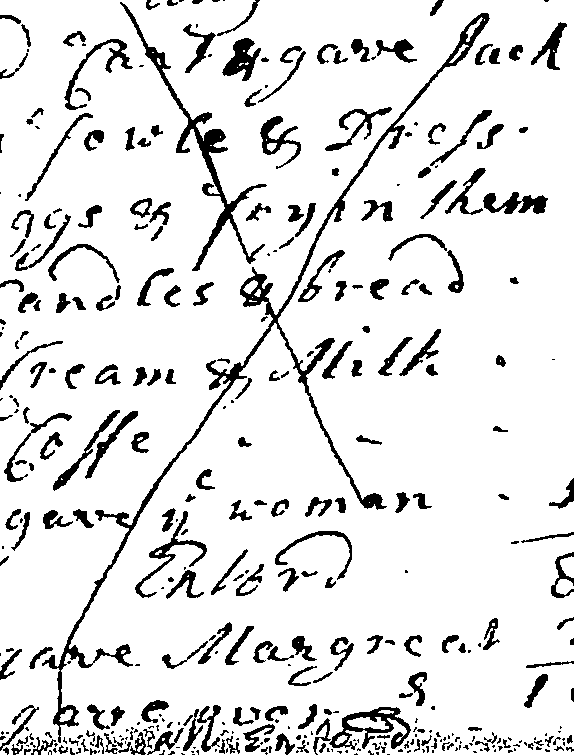 Cart & gave Jack
fowle & Dress
ggs & fryin them
Candles & bread
Cream & Milk
Coffe
gave yᵉ woman
Enterd
gave Margreat
gave
all Enterd